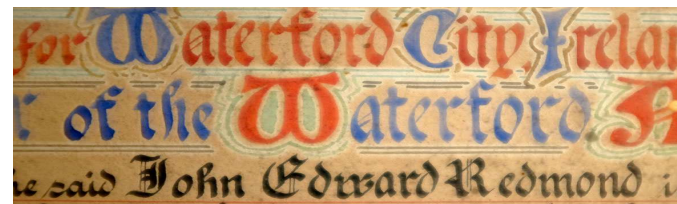 for Waterford City, Ireland
of the Waterford
he said John Edward Redmond